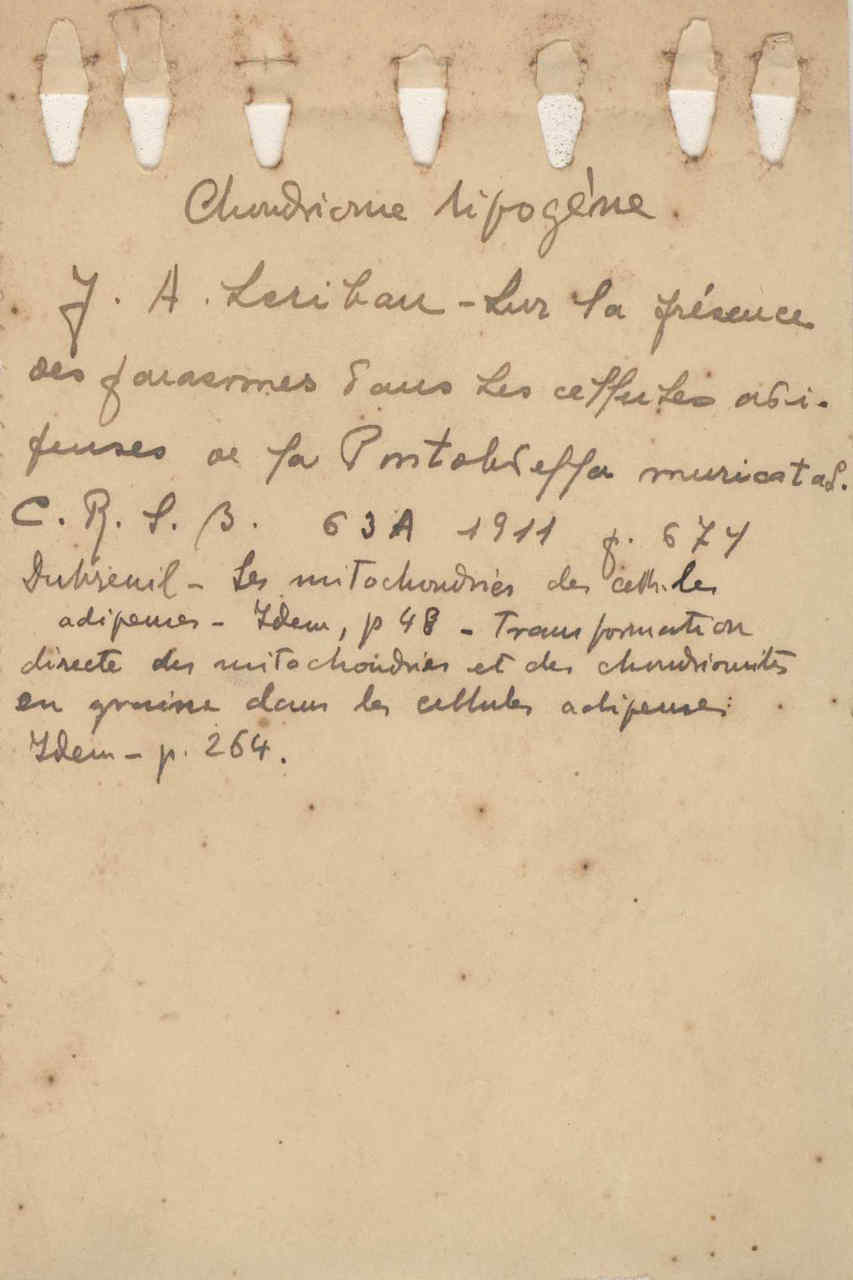 Chondriome lipogène.
J. A. Lesriban - Sur la présence
des parasomes dans les cellules adi-
peuses de la Pontobdella muricata L.
C. R. S. B. 63A 1911 p. 674
Dubreuil - Les mitochondries des cellules
adipeuses - Idem, p 48 - Transformation
directe des mitochondries et des chondriomites
en graisse dans les cellules adipeuses
Idem - p. 264.